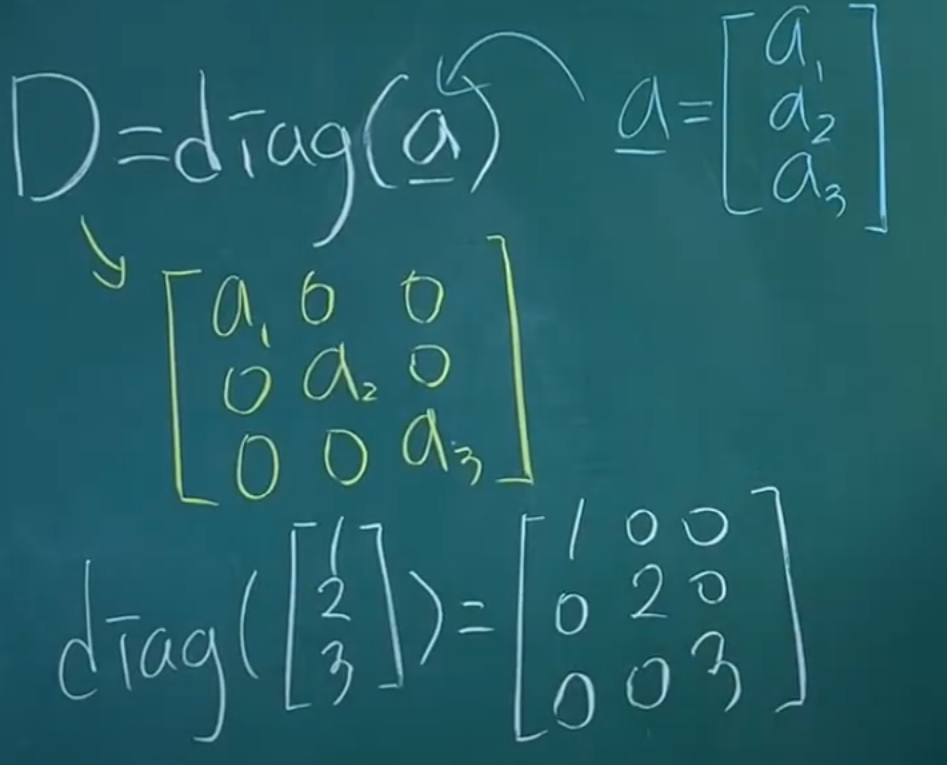 D=diag(a) a=[a₁
a₂
a₃]
[a₁ 0 0
0 a₂ 0
0 0 a₃]
diag([1
2
3])=[1 0 0
0 2 0
0 0 3]